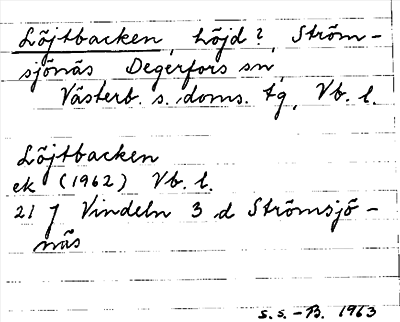 Löjtbacken, höjd?, Ström-
sjönäs, Degerfors sn,
Västerb. s. doms. tg, Vb. l.
Löjtbacken
ek (1962) Vb. l.
21 J Vindeln 3 d Strömsjö-
näs
S.S.-B. 1963